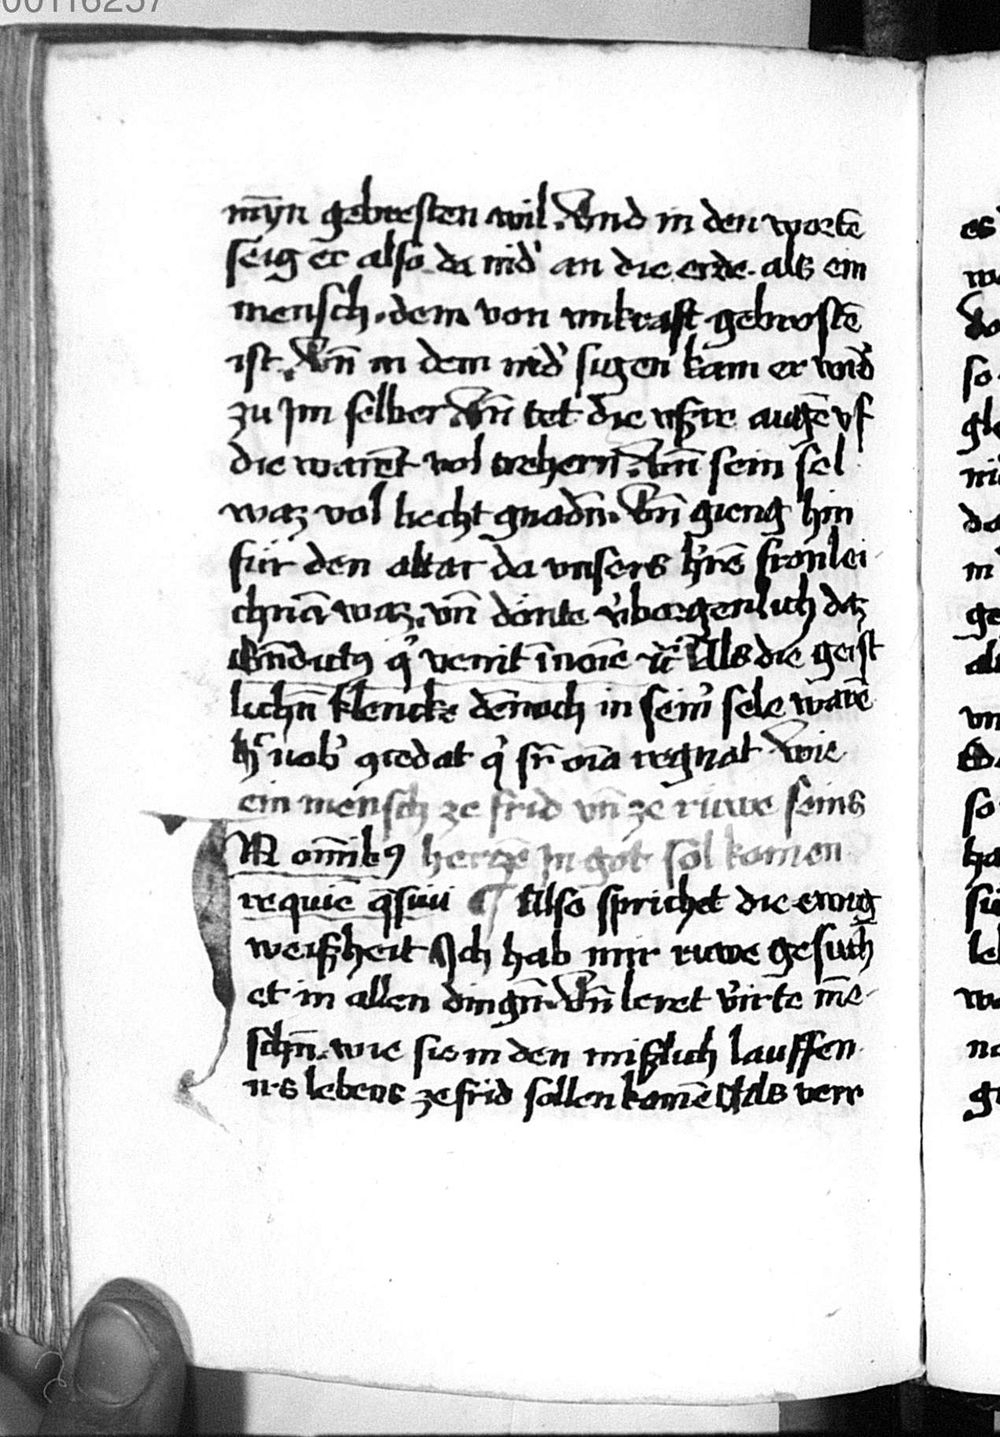 00116237
mȳn gebresten wil. Vnd in den wortē
seig er also da nid' an die erde. als ein
mensch. dem von vnkraft gebrostē
ist. Vn̄ in dem nid' sigen kam er wid'
zu Jm selber. Vn̄ tet die vssre augē vf
die warēt vol trehern. Vn̄ sein sel
waz vol liecht gnadn̄. Vn̄ gieng hin
für den altar da vnsers h'rē fronlei
chnā waz. vn̄ dönte v'borgenlich daz
Bn̄dictus q' venit in noīe &c̄ Als die geist
lichn̄ klencke dēnoch in sein' sele warē
ein mensch ze frid vn̄ ze ruwe seins
JN om̄ibꝰ hertzē Jn got sol komen
requiē q̄siui ¶ Also sprichet die ewig
weißheit Jch hab mir ruwe gesuch
et in allen dingn̄. Vn̄ leret v'irte mē
schn̄. wie sie in den mißlich lauffen
ns lebens ze frid sollen komē Als verr